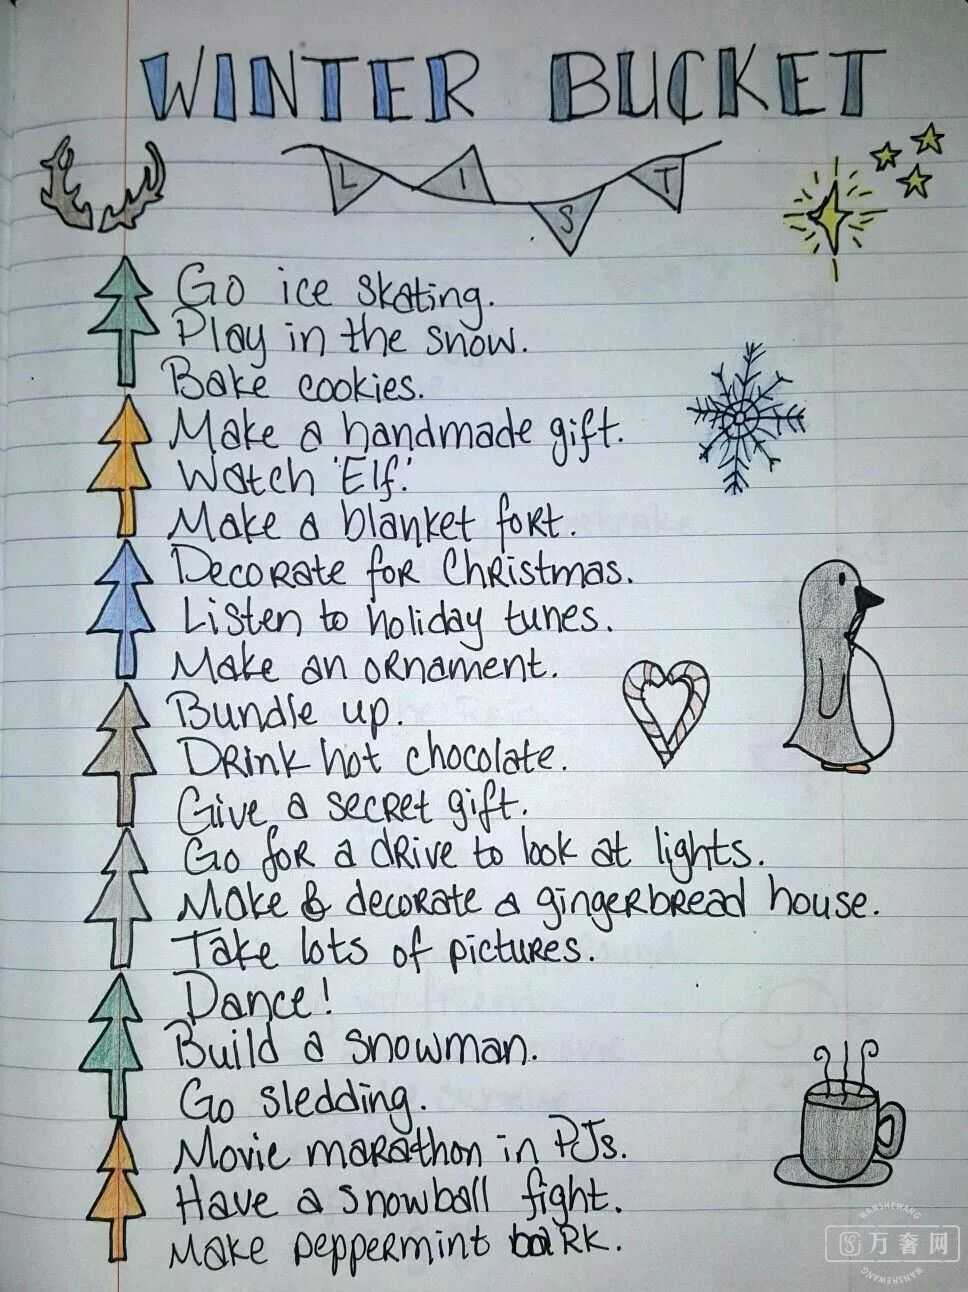 WINTER BUCKET
LIST
Go ice skating.
Play in the snow.
Bake cookies.
Make a handmade gift.
Watch 'Elf.'
Make a blanket fort.
Decorate for Christmas.
Listen to holiday tunes.
Make an ornament.
Bundle up.
Drink hot chocolate.
Give a secret gift.
Go for a drive to look at lights.
Make & decorate a gingerbread house.
Take lots of pictures.
Dance!
Build a snowman.
Go sledding.
Movie marathon in PJs.
Have a snowball fight.
Make peppermint bark.
WANSHEWANG
万奢网
WANSHEWANG